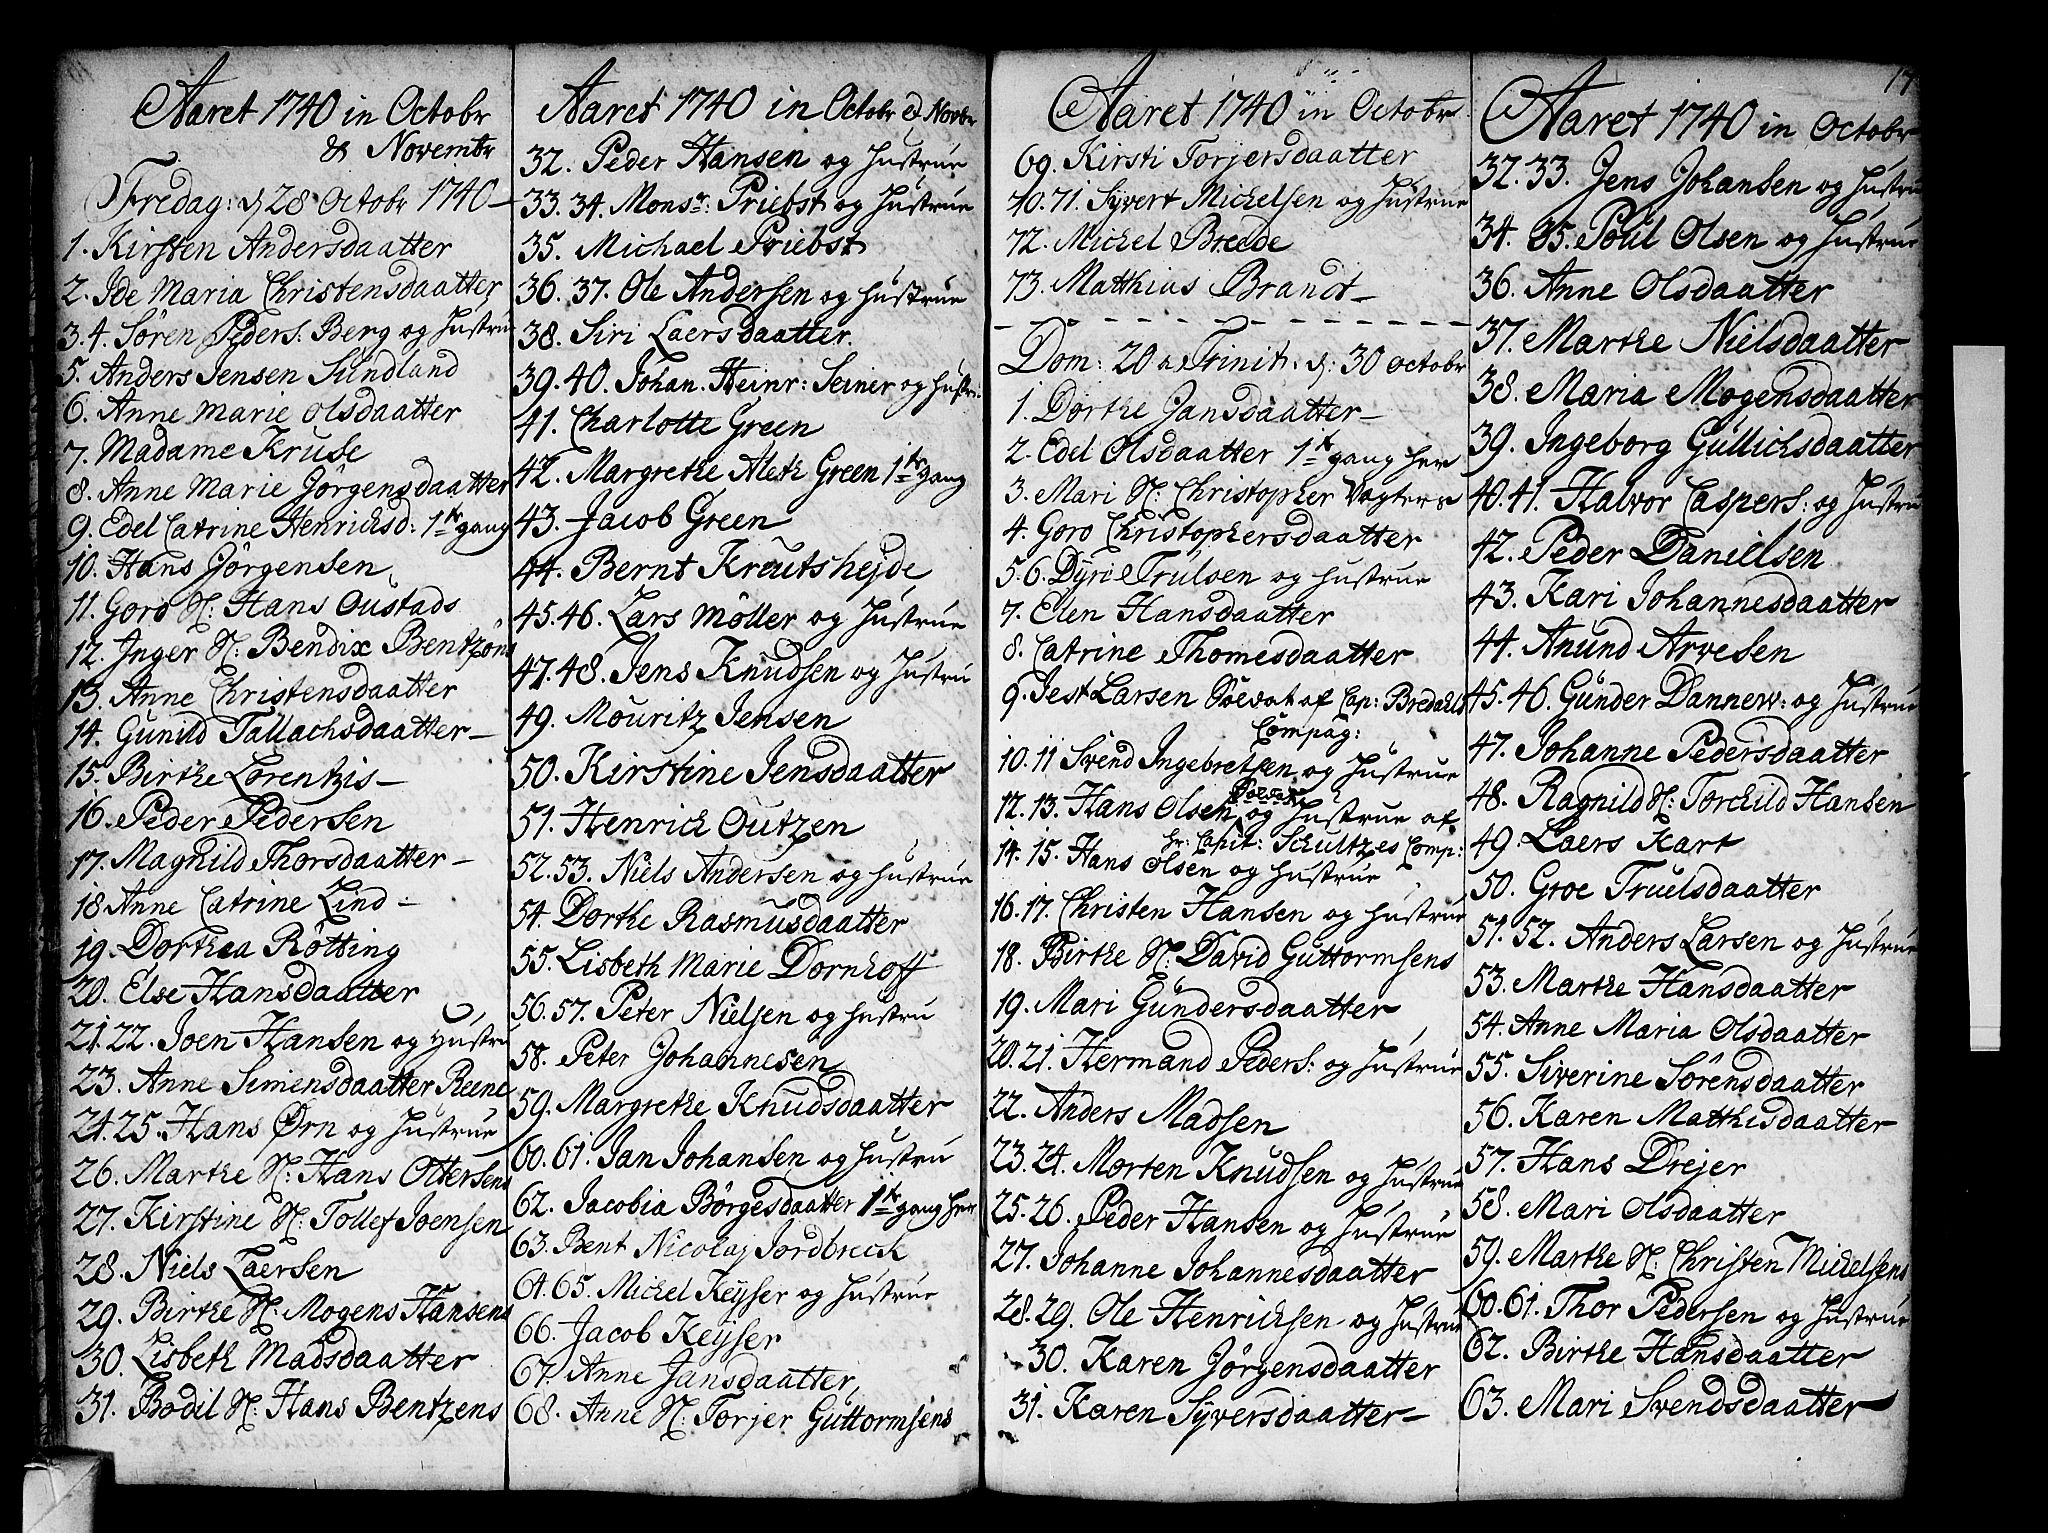 Aaret 1740 in Octobr
& Novembr
Fredag: d 28 Octobr 1740
1. Kirsten Andersdaatter
2. Ide Maria Christensdaatter
3.4. Sören Peders: Berg og Hustru
5. Anders Jensen Sundland
6. Anne Marie Olsdaatter
7. Madame Kruse
8. Anne Marie Jörgensdaatter
9. Edel Catrine Henrichsd: 1te gang
10. Hans Jörgensen
11. Goro N: Hans Oustads
12. Inger N: Bendix Bentzöns
13. Anne Christensdaatter
14. Gunild Tallachsdaatter
15. Birthe Lorentzis
16. Peder Pedersen
17. Magnild Thorsdaatter
18 Anne Catrine Lind
19. Dorthea Rötting
20. Else Hansdaatter
21.22. Joen Hansen og Hustru
23. Anne Simensdaatter Reene
24.25. Hans Ørn og Hustrue
26. Marthe N: Hans Ottersens
27. Kirstine N: Tollef Joensen
28. Niels Laersen
29. Birthe N: Mogens Hansens
30. Lisbeth Madsdaatter
31. Bodil N: Hans Bentzens
Aaret 1740 in Octobr & Novbr
32. Peder Hansen og Hustrue
33.34. Monsr: Priebst og Hustrue
35. Michael Priebst
36.37. Ole Andersen og Hustrue
38. Siri Laersdaatter
39.40. Johan Heinr: Seiner og Hustr:
41. Charlotte Green
42. Margrethe Aleth Green 1te gang
43. Jacob Green
44. Bernt Kreutshejde
45.46. Lars Möller og Hustrue
47.48. Jens Knudsen og Hustru
49. Mouritz Jensen
50. Kirstine Jensdaatter
51. Henrich Outzen
52.53. Niels Andersen og Hustrue
54. Dorthe Rasmusdaatter
55. Lisbeth Marie Dornhoff
56.57. Peter Nielsen og Hustru
58. Peter Johannesen
59. Margrethe Knudsdaatter
60.61. Jan Johansen og Hustru
62. Jacobia Börgesdaatter 1te gang her
63. Bent Nicolaj Jordbreck
64.65. Michel Keyser og Hustrue
66. Jacob Keyser
67. Anne Jansdaatter
68. Anne N: Torjer Guttormsens
Aaret 1740 in Octobr
69. Kirsti Torjersdaatter
70.71. Syvert Michelsen og Hustrue
72. Michel Breede
73. Matthias Brandt
Dom: 20 a Trinit: d: 30 octobr
1. Dorthe Jansdaatter
2. Edel Olsdaatter 1te gang her
3. Mari N: Christopher Vogters
4. Goro Christophersdaatter
5.6. Dyri Trulsen og Hustrue
7. Elen Hansdaatter
8. Catrine Thomesdaatter
9. Jest Larsen Soldat af Cap: Bredahls
Compag:
10.11 Svend Ingebretsen og Hustrue
12.13. Hans Olsen Soldat og Hustrue af
Hr: Capit: Schultzes Comp:
14.15. Hans Olsen og Hustrue
16.17. Christen Hansen og Hustrue
18. Birthe N: David Guttormsens
19. Mari Gundersdaatter
20.21. Hermand Peders: og Hustrue
22. Anders Madsen
23.24. Morten Knudsen og Hustrue
25.26. Peder Hansen og Hustrue
27. Johanne Johannesdaatter
28.29. Ole Henrichsen og Hustrue
30. Karen Jörgensdaatter
31. Karen Syversdaatter
17
Aaret 1740 in Octobr
32.33. Jens Johansen og Hustru
34.35. Poul Olsen og Hustrue
36. Anne Olsdaatter
37. Marthe Nielsdaatter
38. Maria Mogensdaatter
39. Ingeborg Gullichsdaatter
40.41. Halvor Caspers: og Hustru
42. Peder Danielsen
43. Kari Johannesdaatter
44. Anund Arvesen
45.46. Gunder Dannew: og Hustrue
47. Johanne Pedersdaatter
48. Ragnild N: Torchild Hansen
49. Laers Kart
50. Groe Truelsdaatter
51.52. Anders Larsen og Hustrue
53. Marthe Hansdaatter
54. Anne Maria Olsdaatter
55. Siverine Sörensdaatter
56. Karen Matthisdaatter
57. Hans Drejer
58. Mari Olsdaatter
59. Marthe N: Christen Michelsens
60.61. Thor Pedersen og Hustrue
62. Birthe Hansdaatter
63. Mari Svendsdaatter